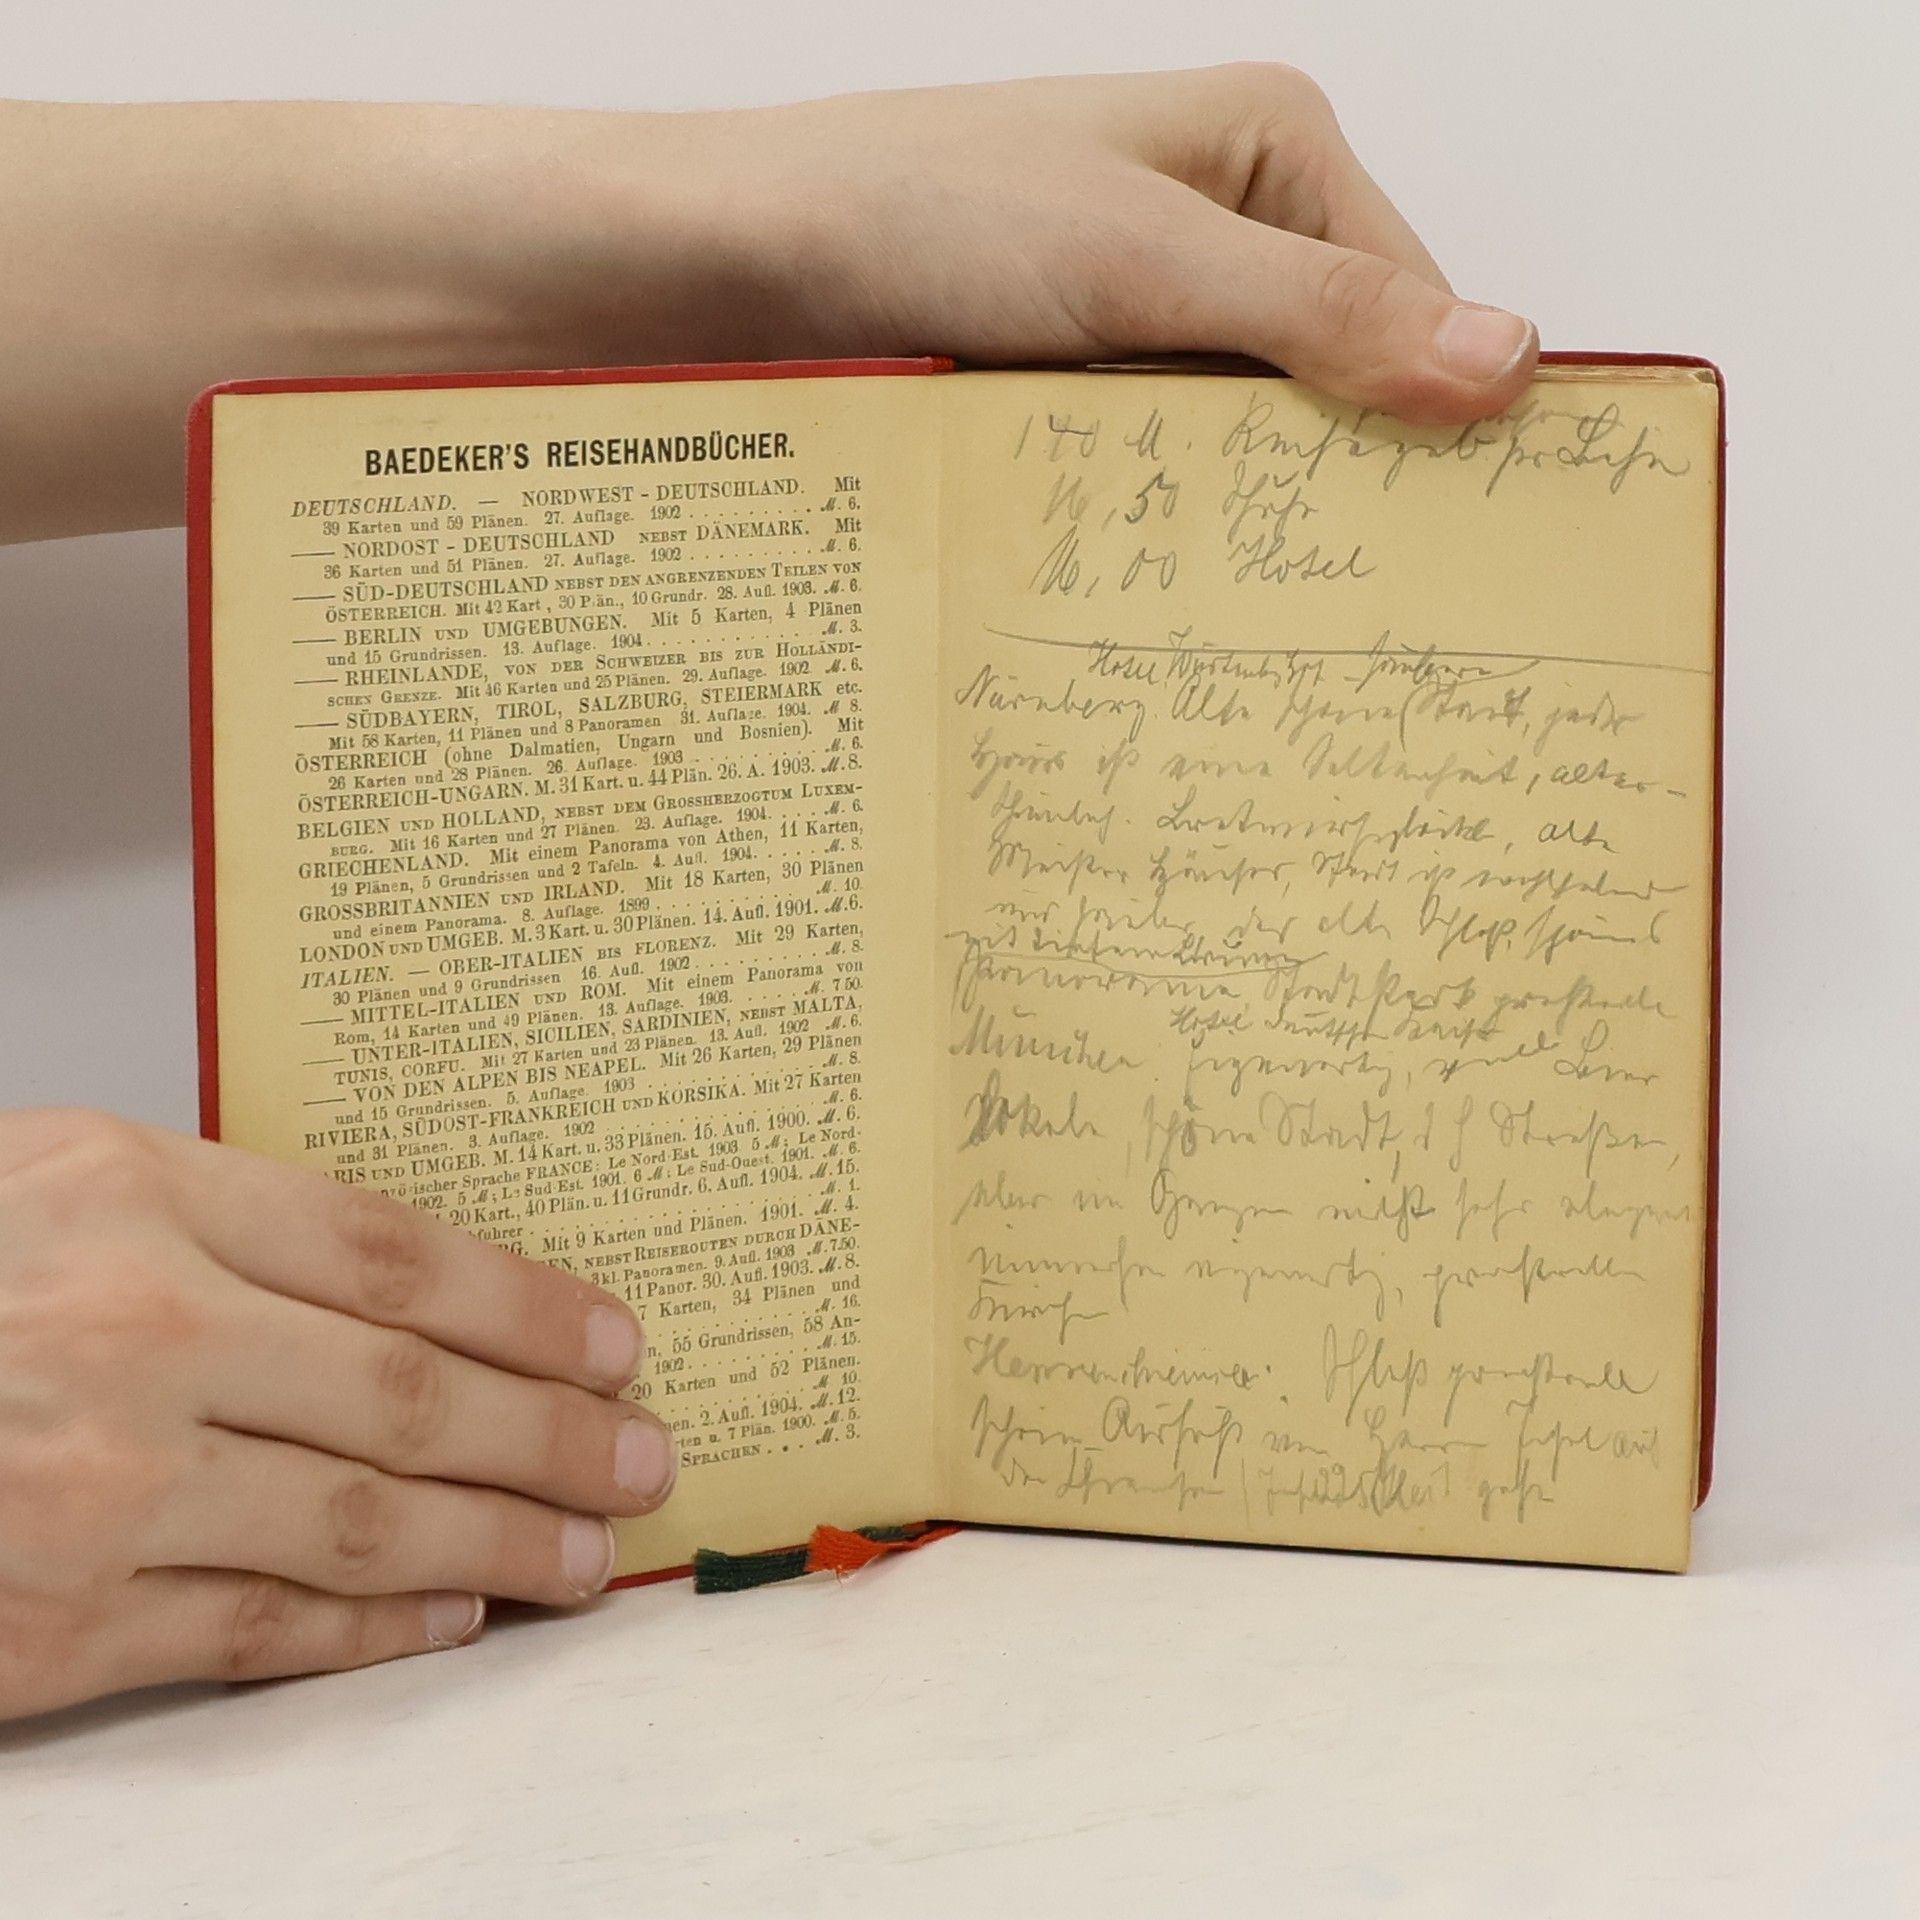 BAEDEKER'S REISEHANDBÜCHER.
DEUTSCHLAND. — NORDWEST-DEUTSCHLAND. Mit
39 Karten und 59 Plänen. 27. Auflage. 1902 . . . . . . . . . ℳ. 6.
—— NORDOST-DEUTSCHLAND NEBST DÄNEMARK. Mit
36 Karten und 51 Plänen. 27. Auflage. 1902 . . . . . . . . ℳ. 6.
—— SÜD-DEUTSCHLAND NEBST DEN ANGRENZENDEN TEILEN VON
ÖSTERREICH. Mit 42 Kart, 30 Plän., 10 Grundr. 28. Aufl. 1903. ℳ. 6.
—— BERLIN UND UMGEBUNGEN. Mit 5 Karten, 4 Plänen
und 15 Grundrissen. 13. Auflage. 1904. . . . . . . . . . ℳ. 3.
—— RHEINLANDE, VON DER SCHWEIZER BIS ZUR HOLLÄNDI-
SCHEN GRENZE. Mit 46 Karten und 25 Plänen. 29. Auflage. 1902. ℳ. 6.
—— SÜDBAYERN, TIROL, SALZBURG, STEIERMARK etc.
Mit 58 Karten, 11 Plänen und 8 Panoramen 31. Auflage. 1904. ℳ 8.
ÖSTERREICH (ohne Dalmatien, Ungarn und Bosnien). Mit
26 Karten und 28 Plänen. 26. Auflage. 1903 . . . . . . . ℳ. 6.
ÖSTERREICH-UNGARN. M. 31 Kart. u. 44 Plän. 26. A. 1903. ℳ. 8.
BELGIEN UND HOLLAND, NEBST DEM GROSSHERZOGTUM LUXEM-
BURG. Mit 16 Karten und 27 Plänen. 23. Auflage. 1904. . . . ℳ. 6.
GRIECHENLAND. Mit einem Panorama von Athen, 11 Karten,
19 Plänen, 5 Grundrissen und 2 Tafeln. 4. Aufl. 1904. . . . . ℳ. 8.
GROSSBRITANNIEN UND IRLAND. Mit 18 Karten, 30 Plänen
und einem Panorama. 8. Auflage. 1899 . . . . . . . . . ℳ. 10.
LONDON UND UMGEB. M. 3 Kart. u. 30 Plänen. 14. Aufl. 1901. ℳ. 6.
ITALIEN. — OBER-ITALIEN BIS FLORENZ. Mit 29 Karten,
30 Plänen und 9 Grundrissen 16. Aufl. 1902 . . . . . . . ℳ. 8.
—— MITTEL-ITALIEN UND ROM. Mit einem Panorama von
Rom, 14 Karten und 49 Plänen. 13. Auflage. 1903. . . . . ℳ. 7.50.
—— UNTER-ITALIEN, SICILIEN, SARDINIEN, NEBST MALTA,
TUNIS, CORFU. Mit 27 Karten und 23 Plänen. 13. Aufl. 1902 ℳ. 6.
—— VON DEN ALPEN BIS NEAPEL. Mit 26 Karten, 29 Plänen
und 15 Grundrissen. 5. Auflage. 1903 . . . . . . . . . . ℳ. 8.
RIVIERA, SÜDOST-FRANKREICH UND KORSIKA. Mit 27 Karten
und 31 Plänen. 3. Auflage. 1902 . . . . . . . . . . . . ℳ. 6.
RIS UND UMGEB. M. 14 Kart. u. 33 Plänen. 15. Aufl. 1900. ℳ. 6.
ischer Sprache FRANCE: Le Nord-Est. 1903 5 ℳ; Le Nord-
1902. 5 ℳ; Le Sud-Est. 1901. 6 ℳ; Le Sud-Ouest. 1901. ℳ. 6.
20 Kart., 40 Plän. u. 11 Grundr. 6. Aufl. 1904. ℳ. 15.
führer . . . . . . . . . . . . . . . ℳ. 1.
RG. Mit 9 Karten und Plänen. 1901. ℳ. 4.
EN, NEBST REISEROUTEN DURCH DÄNE-
3 kl. Panoramen. 9. Aufl. 1903 ℳ. 7.50.
11 Panor. 30. Aufl. 1903. ℳ. 8.
7 Karten, 34 Plänen und
. . . . . . . . . ℳ. 16.
n, 55 Grundrissen, 58 An-
1902. . . . . . . . . ℳ. 15.
20 Karten und 52 Plänen.
. . . . . . . . . ℳ 10.
nen. 2. Aufl. 1904. ℳ. 12.
ten u. 7 Plän. 1900. ℳ. 5.
SPRACHEN . . . ℳ. 3.
140 M.
16,50
16,00 Hotel
Hotel
Nürnberg. Alte schöne Stadt, jedes
Haus ist eine Seltenheit, alter-
thümlich. Bratwurstglöckle, alte
Meister Häuser, Stadt ist wohlhabend
und sauber, das alte Schloß, schönes
Panorama, Stadtpark prachtvoll
Hotel Deutscher Kaiser
München. Eigenartig, viele Bier
Lokale, schöne Stadt, d h Straßen,
aber im Ganzen nicht sehr elegant
eigenartig, prachtvolle
Kirchen
Herrenchiemsee. Schloß prachtvoll
schöne Aussicht von Insel